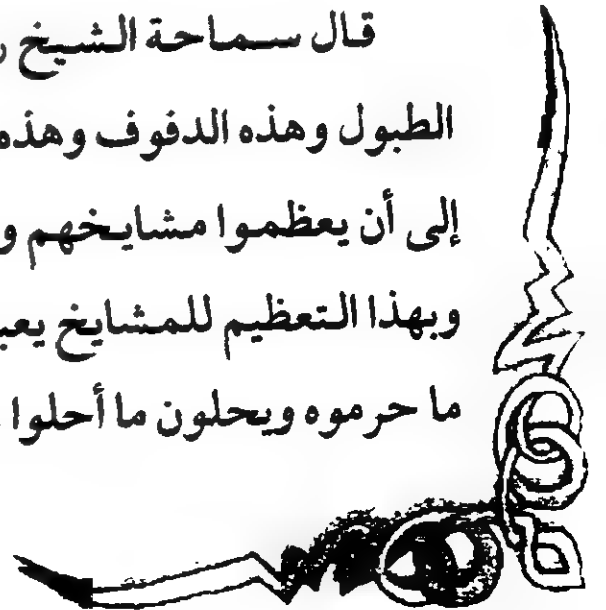 قال سماحة الشيخ ر
الطبول وهذه الدفوف وهذه
إلى أن يعظموا مشايخهم و
وبهذا التعظيم للمشايخ يعب
ما حرموه ويحلون ما أحلوا